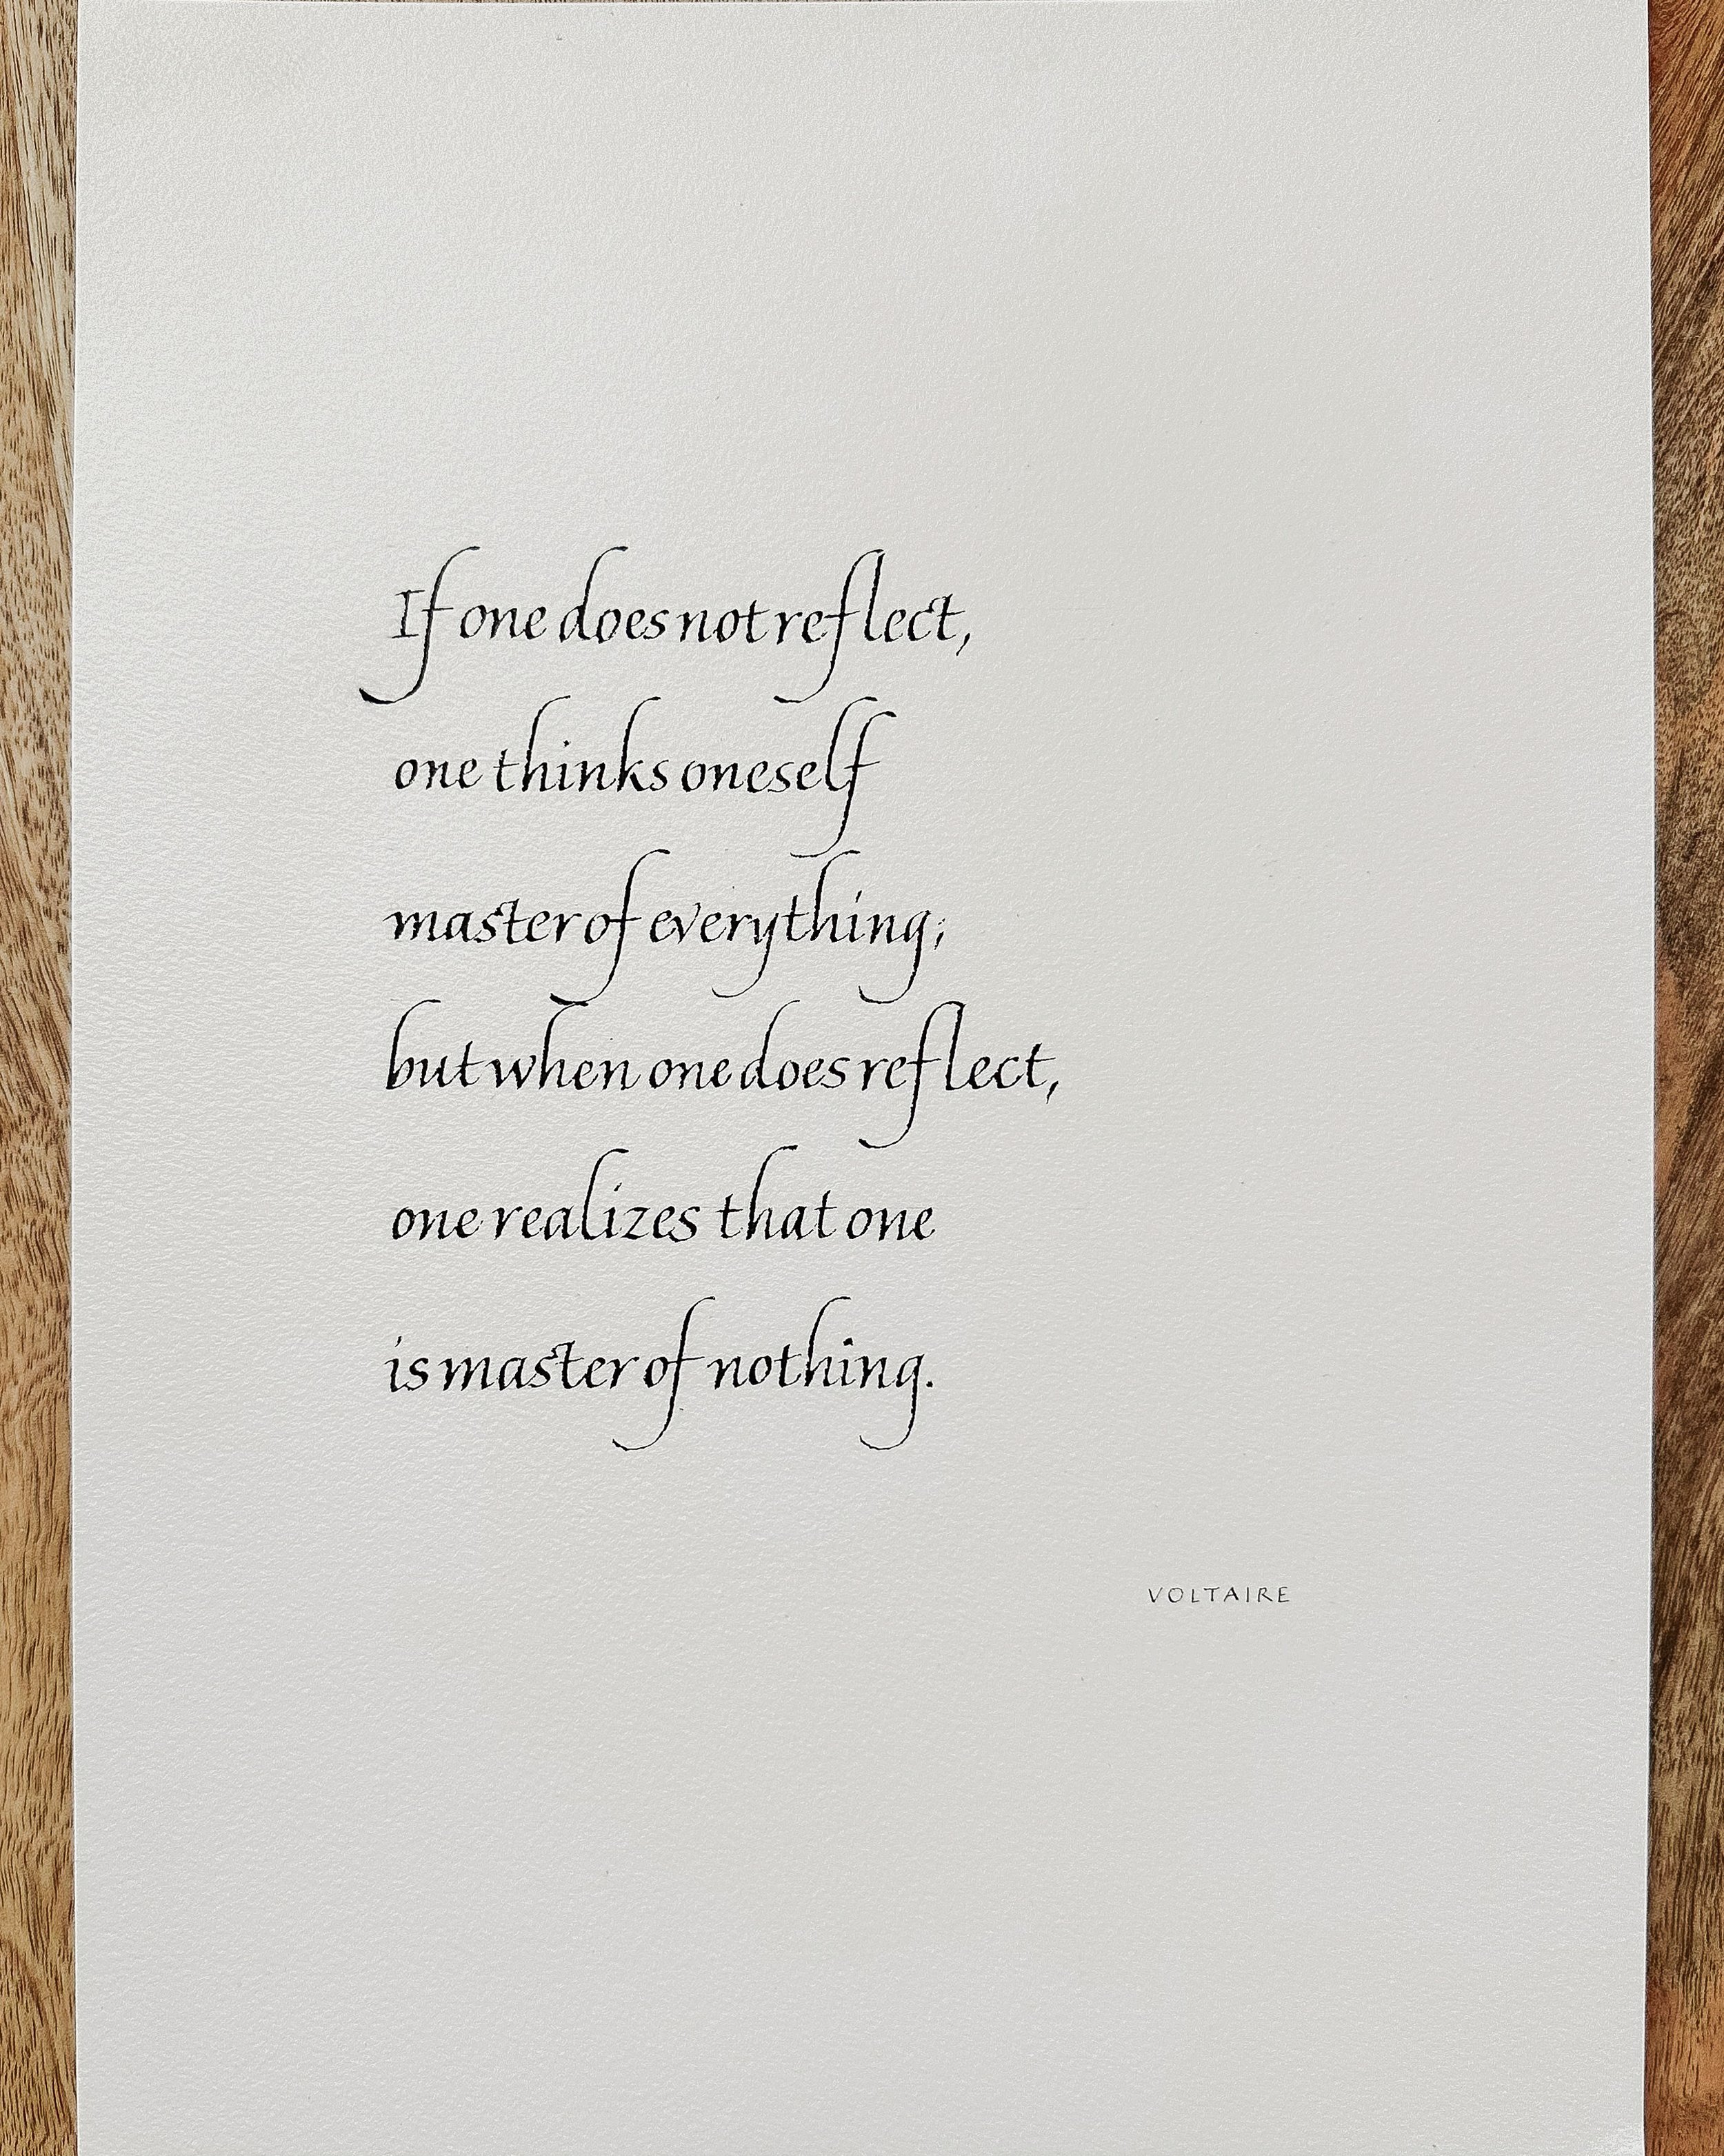 If one does not reflect,
one thinks oneself
master of everything;
but when one does reflect,
one realizes that one
is master of nothing.
VOLTAIRE